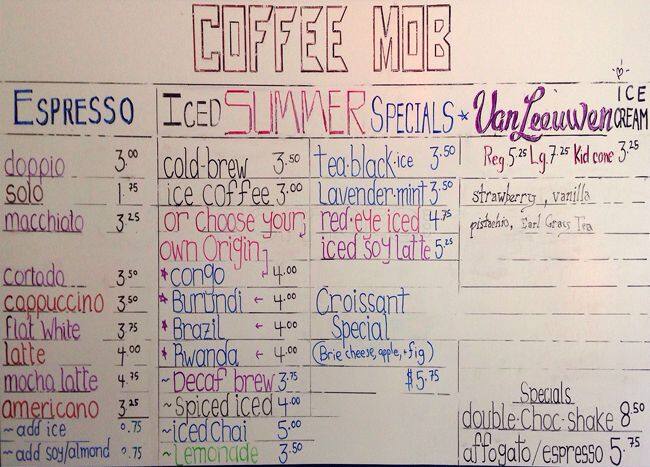 COFFEE MOB
ESPRESSO
doppio 3.00
solo 1.75
macchiato 3.25
cortado 3.50
cappuccino 3.50
flat white 3.75
latte 4.00
mocha latte 4.75
americano 3.25
~ add ice 0.75
~ add soy/almond 0.75
ICED SUMMER SPECIALS *
cold-brew 3.50
ice coffee 3.00
or choose your
own Origin
* congo 4.00
* Burundi ← 4.00
* Brazil ← 4.00
* Rwanda ← 4.00
~Decaf brew 3.75
~Spiced iced 4.00
~iced Chai 5.00
~Lemonade 3.50
tea·black·ice 3.50
Lavender·mint 3.50
red·eye iced 4.75
iced soy latte 5.25
Croissant
Special
(Brie cheese, apple, + fig)
$5.75
Van Leeuwen ICE CREAM
Reg 5.25 Lg. 7.25 Kid cone 3.25
strawberry, vanilla
pistachio, Earl Grays Tea
Specials
double·Choc·shake 8.50
affogato/espresso 5.75